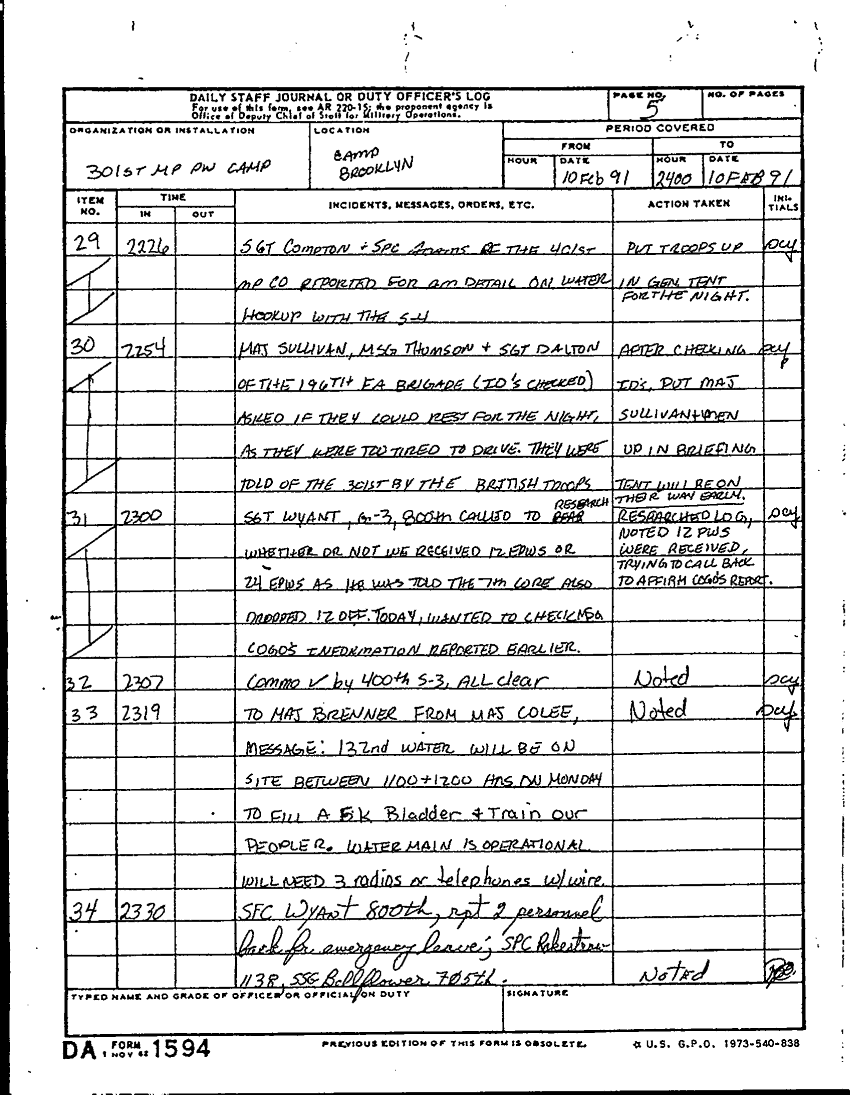 DAILY STAFF JOURNAL OR DUTY OFFICER'S LOG
For use of this form, see AR 220-15; the proponent agency is
Office of Deputy Chief of Staff for Military Operations.
PAGE NO.
5
NO. OF PAGES
ORGANIZATION OR INSTALLATION
301ST MP PW CAMP
LOCATION
CAMP
BROOKLYN
PERIOD COVERED
FROM
TO
HOUR
DATE
10 Feb 91
HOUR
2400
DATE
10 FEB 91
ITEM NO.
TIME
IN
OUT
INCIDENTS, MESSAGES, ORDERS, ETC.
ACTION TAKEN
INI-
TIALS
29 2226 SGT COMPTON + SPC OF THE 401ST PUT TROOPS UP
MP CO REPORTED FOR AM DETAIL ON WATER IN GEN TENT
FOR THE NIGHT.
HOOKUP WITH THE S-4
30 2254 MAJ SULLIVAN, MSG THOMSON + SGT DALTON AFTER CHECKING
OF THE 196TH FA BRIGADE (ID'S CHECKED) ID'S, PUT MAJ
ASKED IF THEY COULD REST FOR THE NIGHT, SULLIVAN + MEN
AS THEY WERE TOO TIRED TO DRIVE. THEY WERE UP IN BRIEFING
TOLD OF THE 301ST BY THE BRITISH TROOPS TENT WILL BE ON
THEIR WAY EARLY.
31 2300 SGT WYANT, G-3, 800TH CALLED TO RESEARCH RESEARCHED LOG,
NOTED 12 PWS
WHETHER OR NOT WE RECEIVED 12 EPWS OR WERE RECEIVED,
TRYING TO CALL BACK
24 EPWS AS HE WAS TOLD THE 7TH CORE ALSO TO AFFIRM COGO'S REPORT.
DROPPED 12 OFF. TODAY, WANTED TO CHECK
COGO'S INFORMATION REPORTED EARLIER.
32 2307 Commo ✓ by 400th S-3, ALL clear Noted
33 2319 TO MAJ BRENNER FROM MAJ COLEE, Noted
MESSAGE: 132nd WATER WILL BE ON
SITE BETWEEN 1100 + 1200 HRS ON MONDAY
TO FILL A 5K Bladder + Train our
PEOPLE. WATER MAIN IS OPERATIONAL
WILL NEED 3 radios or telephones w/wire.
34 2330 SFC WYANT 800th, rpt 2 personnel
back for emergency leave; SPC Rakestraw
1138, SSG Bellflower 705th. Noted
TYPED NAME AND GRADE OF OFFICER OR OFFICIAL ON DUTY
SIGNATURE
DA FORM 1 NOV 62 1594
PREVIOUS EDITION OF THIS FORM IS OBSOLETE.
☆ U.S. G.P.O. 1973-540-838